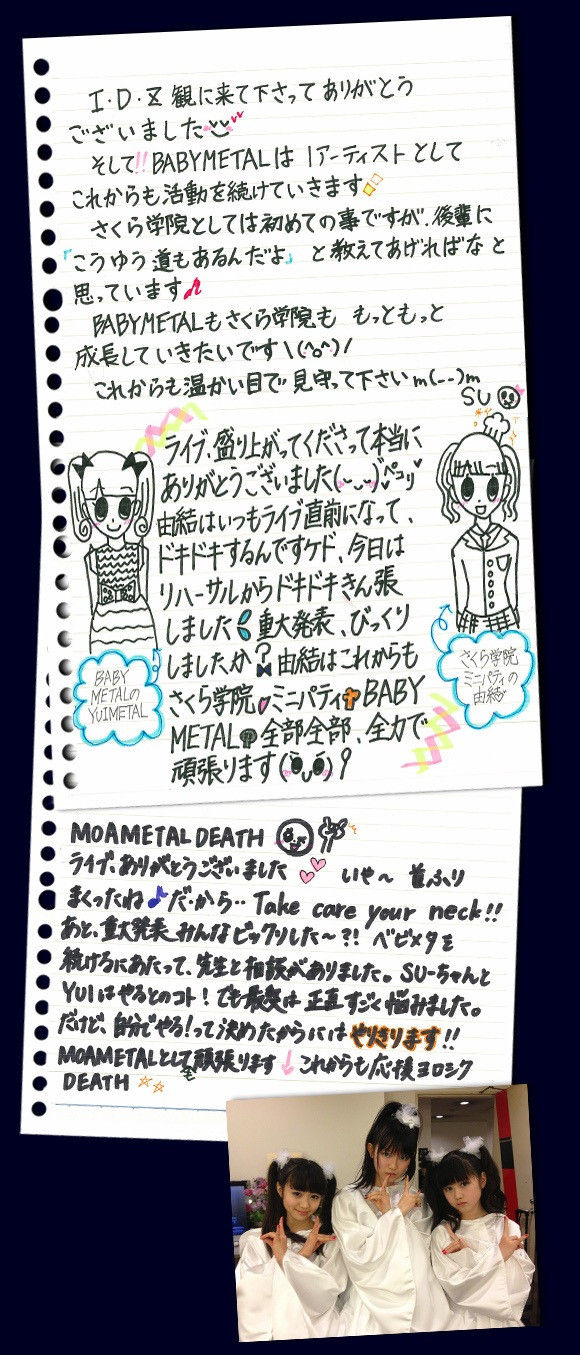 I・D・Z 観に来て下さってありがとう
ございました
そして!! BABYMETALは1アーティストとして
これからも活動を続けていきます
さくら学院としては初めての事ですが、後輩に
「こうゆう道もあるんだよ」と教えてあげればなと
思っています♪
BABYMETALもさくら学院も もっともっと
成長していきたいです\(^o^)/
これからも温かい目で見守って下さいm(--)m
SU
ライブ、盛り上がってくださって本当に
ありがとうございました(ᵕᴗᵕ)ペコリ♥
由結はいつもライブ直前になって、
ドキドキするんですケド、今日は
リハーサルからドキドキきん張
しました 重大発表、びっくり
しましたか? 由結はこれからも
さくら学院 ミニパティ BABY
METAL 全部全部、全力で
頑張ります(•ᴗ•)
BABY
METALの
YUIMETAL
さくら学院
ミニパティの
由結
MOAMETAL DEATH
ライブ、ありがとうございました いや〜 首ふり
まくったね♪だ・か・ら・・Take care your neck!!
あと、重大発表みんなビックリした〜?! ベビメタを
続けるにあたって、先生と相談がありました。SU-ちゃんと
YUIはやるとのコト!でも最愛は正直すごく悩みました。
だけど、自分でやる!って決めたからには やりきります!!
MOAMETALとしても頑張ります↓ これからも応援ヨロシク
DEATH ☆☆